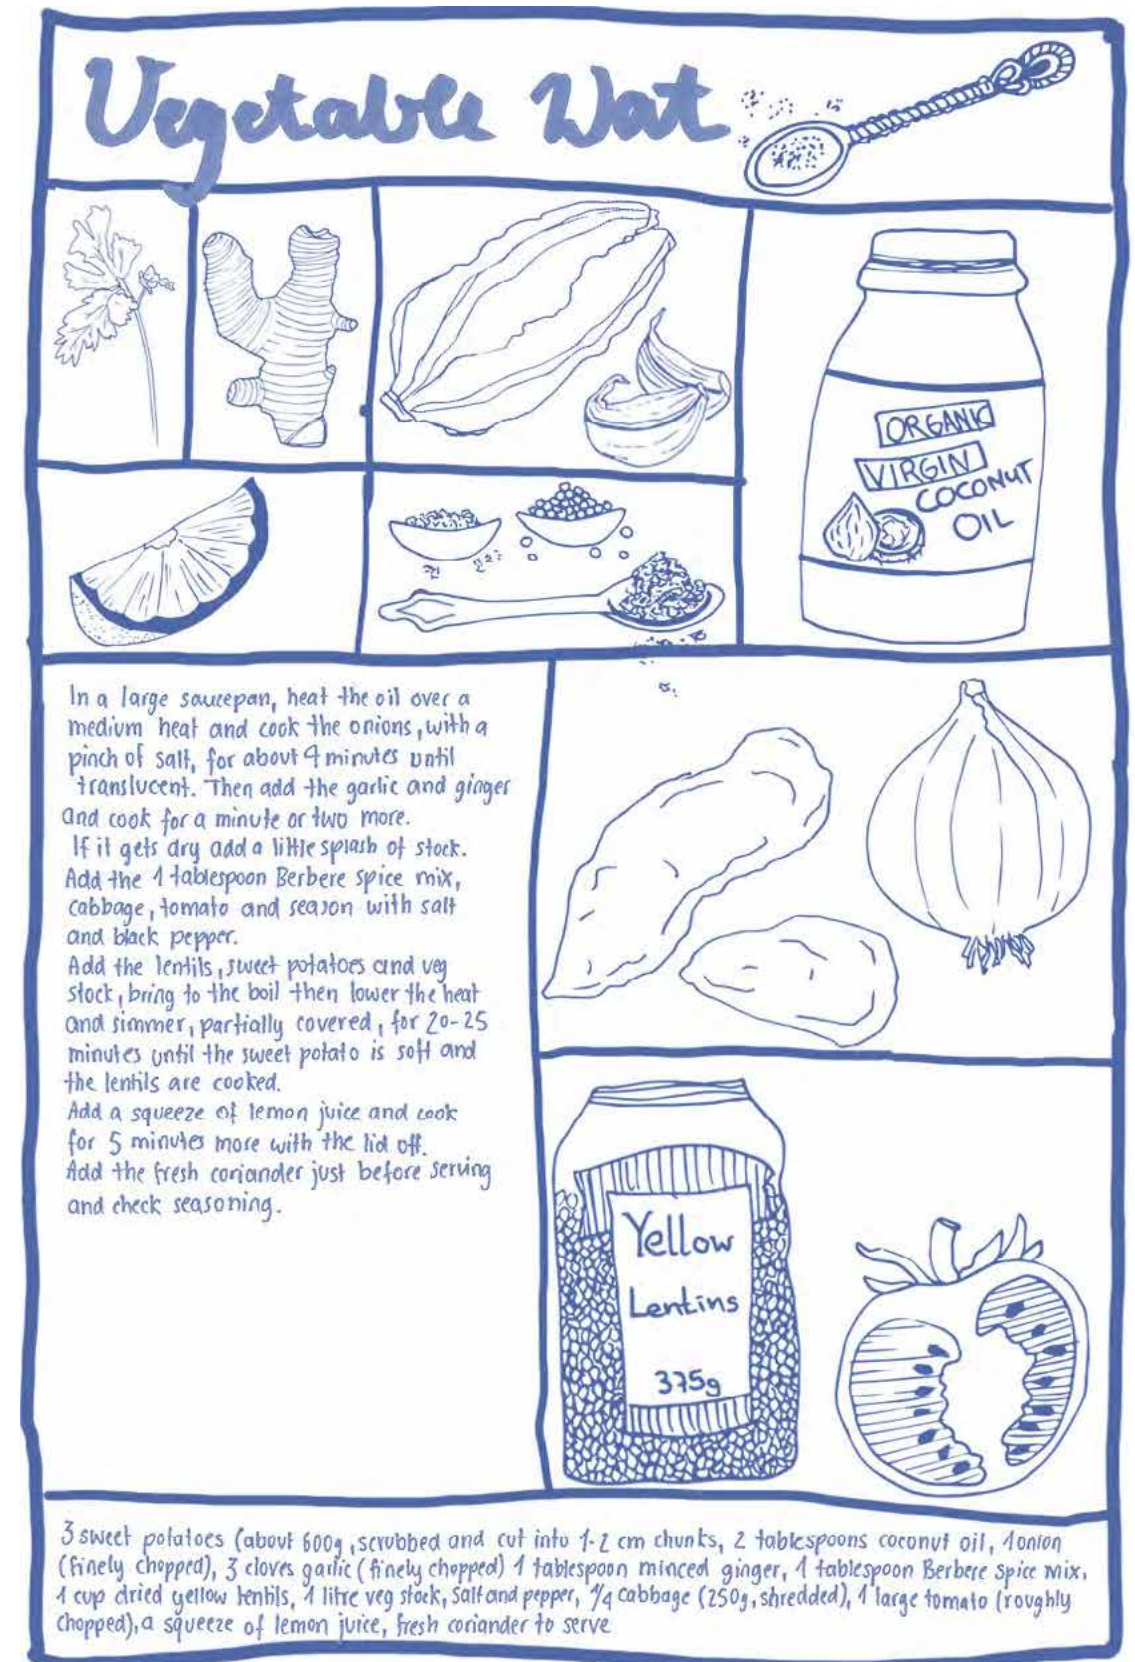 Vegetable Wat
ORGANIC
VIRGIN
COCONUT
OIL
In a large saucepan, heat the oil over a
medium heat and cook the onions, with a
pinch of salt, for about 4 minutes until
translucent. Then add the garlic and ginger
and cook for a minute or two more.
If it gets dry add a little splash of stock.
Add the 1 tablespoon Berbere spice mix,
cabbage, tomato and season with salt
and black pepper.
Add the lentils, sweet potatoes and veg
stock, bring to the boil then lower the heat
and simmer, partially covered, for 20-25
minutes until the sweet potato is soft and
the lentils are cooked.
Add a squeeze of lemon juice and cook
for 5 minutes more with the lid off.
Add the fresh coriander just before serving
and check seasoning.
Yellow
Lentins
375g
3 sweet potatoes (about 600g, scrubbed and cut into 1-2 cm chunks, 2 tablespoons coconut oil, 1 onion
(finely chopped), 3 cloves garlic (finely chopped) 1 tablespoon minced ginger, 1 tablespoon Berbere Spice Mix,
1 cup dried yellow lentils, 1 litre veg stock, Salt and pepper, 1/4 cabbage (250g, shredded), 1 large tomato (roughly
chopped), a squeeze of lemon juice, fresh coriander to serve